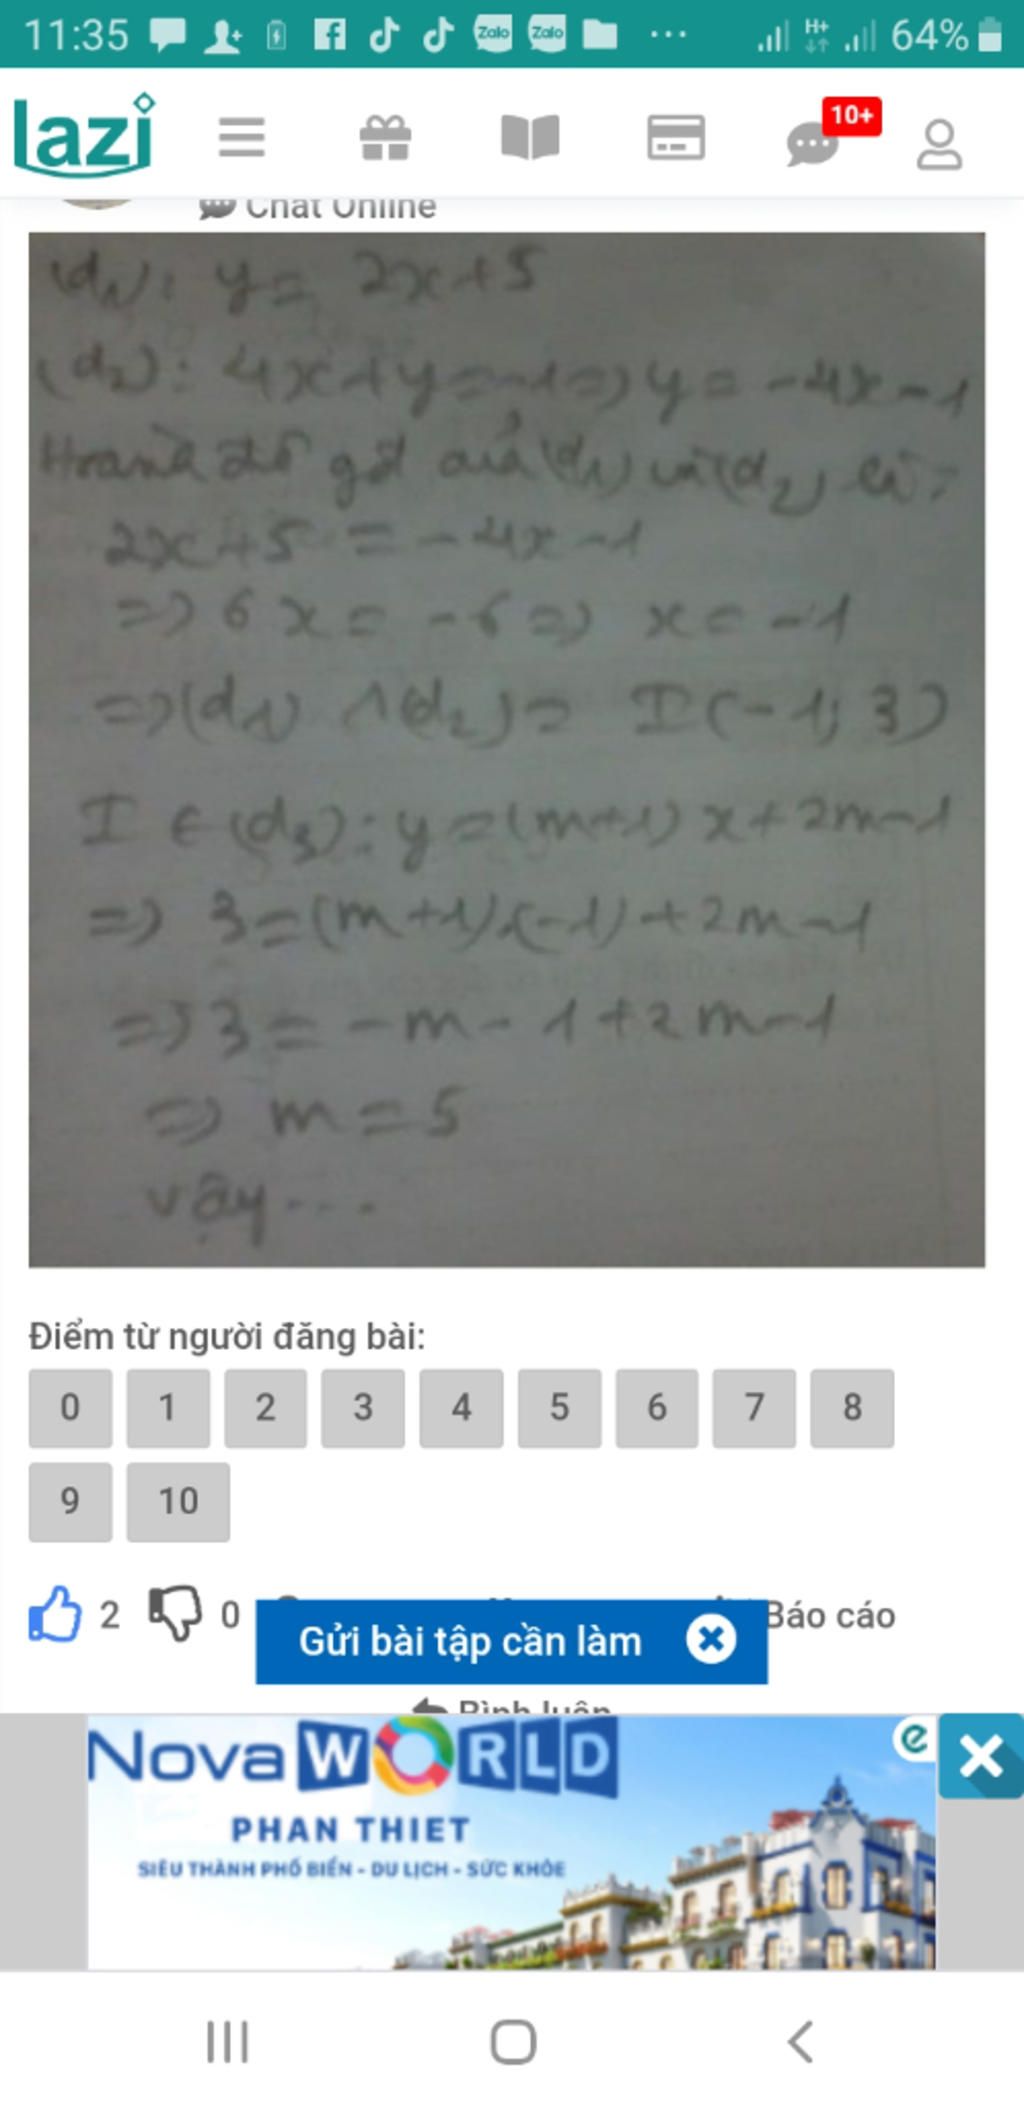 11:35 Zalo Zalo ... H+ 64%
lazi 10+
Chat Online
(d1): y = 2x+5
(d2): 4x+y=-1=> y = -4x-1
Hoành độ gđ của (d1) và (d2) là:
2x+5 = -4x-1
=> 6x = -6 => x = -1
=> (d1) ∩ (d2) = I(-1; 3)
I ∈ (d3): y = (m+1)x+2m-1
=> 3=(m+1).(-1)+2m-1
=> 3 = -m-1+2m-1
=> m = 5
vậy...
Điểm từ người đăng bài:
0 1 2 3 4 5 6 7 8
9 10
2 0 Báo cáo
Gửi bài tập cần làm
Bình luận
NovaWORLD
PHAN THIET
SIÊU THÀNH PHỐ BIỂN - DU LỊCH - SỨC KHỎE